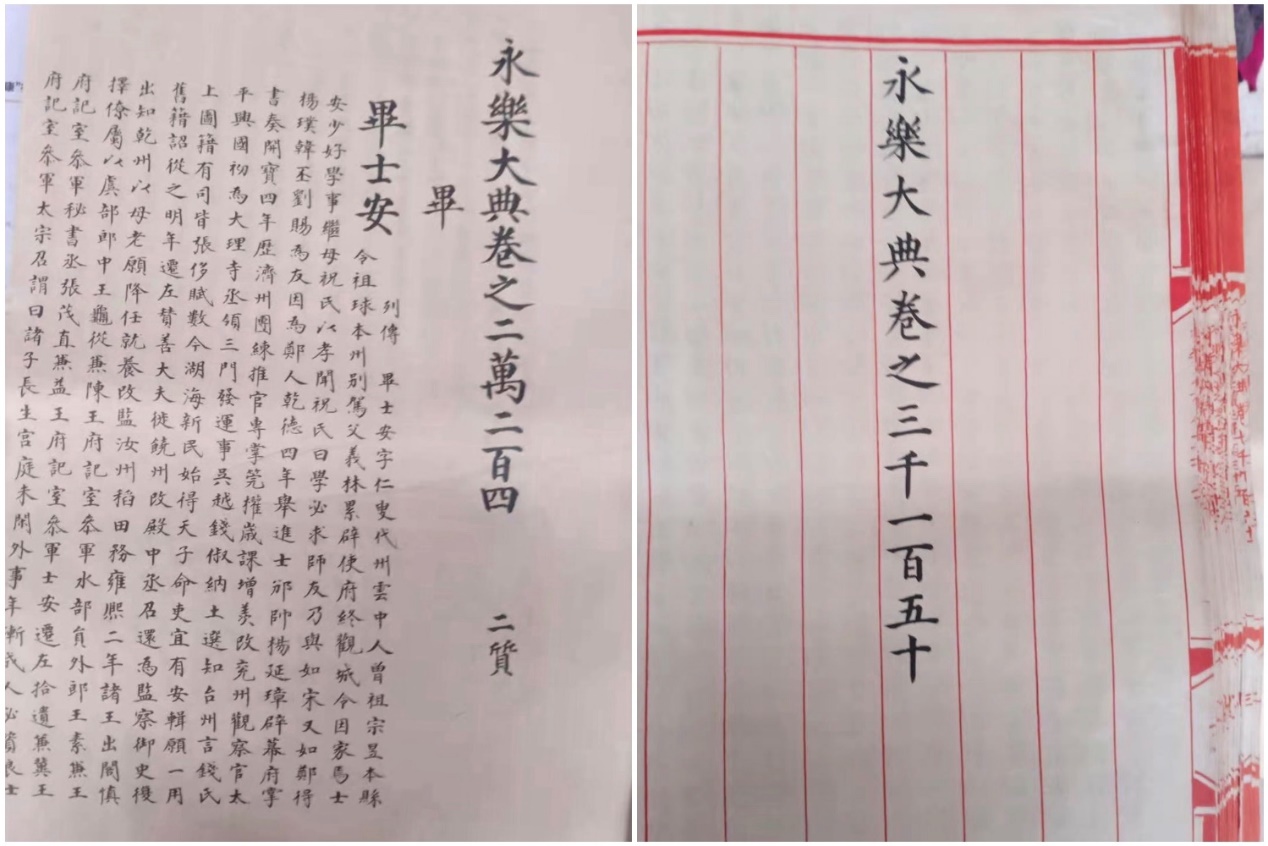 永樂大典卷之二萬二百四 二質
畢
畢士安 列傳 畢士安字仁叟代州雲中人曾祖宗昱本縣
令祖球本州別駕父義林累辟使府終觀城令因家焉士
安少好學事繼母祝氏以孝聞祝氏曰學必求師友乃與如宋又如鄭得
楊璞韓丕劉賜為友因為鄭人乾德四年舉進士邠帥楊延璋辟幕府掌
書奏開寶四年歷濟州團練推官專掌筦榷歲課增羨改兗州觀察官太
平興國初為大理寺丞領三門發運事吳越錢俶納土選知台州言錢氏
上圖籍有司皆張侈賦數今湖海新民始得天子命吏宜有安輯願一用
舊籍詔從之明年遷左贊善大夫徙饒州改殿中丞召還為監察御史復
出知乾州以母老願降任就養改監汝州稻田務雍熙二年諸王出閤慎
擇僚屬以虞部郎中王龜從兼陳王府記室參軍水部員外郎王素兼王
府記室參軍秘書丞張茂直兼益王府記室參軍士安遷左拾遺兼冀王
府記室參軍太宗召謂曰諸子長生宮庭未閑外事年漸成人必資良士
永樂大典卷之三千一百五十